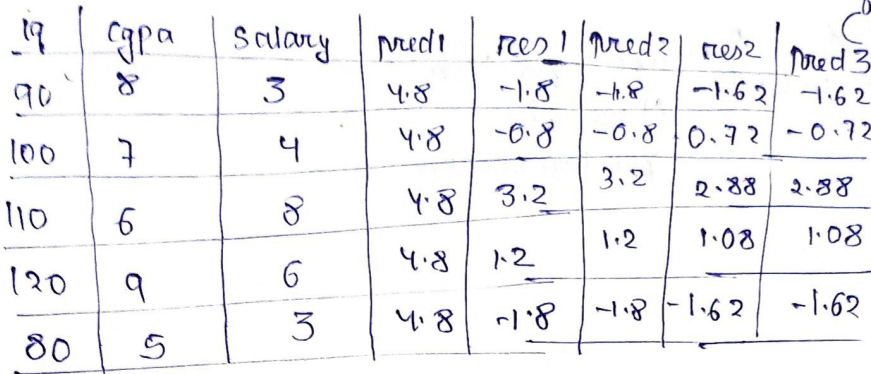 iq cgpa salary pred1 res1 pred2 res2 pred3
90 8 3 4.8 -1.8 -1.8 -1.62 -1.62
100 7 4 4.8 -0.8 -0.8 0.72 -0.72
110 6 8 4.8 3.2 3.2 2.88 2.88
120 9 6 4.8 1.2 1.2 1.08 1.08
80 5 3 4.8 -1.8 -1.8 -1.62 -1.62